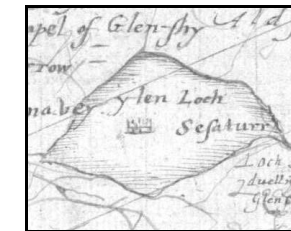 pel of Glen-shy Ald
row
naver ylen Loch
Sesaturr
Loch
duell
Glen